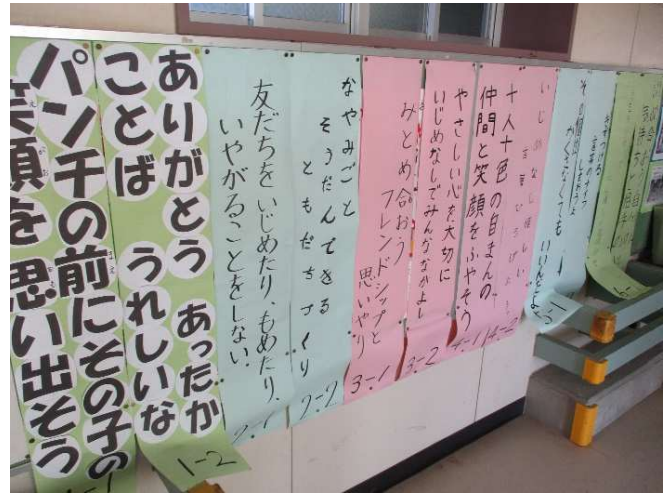 パンチの前にその子の
笑顔を思い出そう
1-1
ありがとう あったか
ことば うれしいな
1-2
友だちをいじめたり、もめたり、
いやがることをしない。
2-1
なやみごと
そうだんできる
ともだちづくり
2-2
みとめ合おう
フレンドシップと
思いやり
3-1
やさしい心を大切に
いじめなしでみんななかよし
3-2
十人十色の自まんの、
仲間と笑顔をふやそう
4-1
いじめなし優しい
言葉ひろげよう
4-2
かくさなくても いいんだよ
5-1